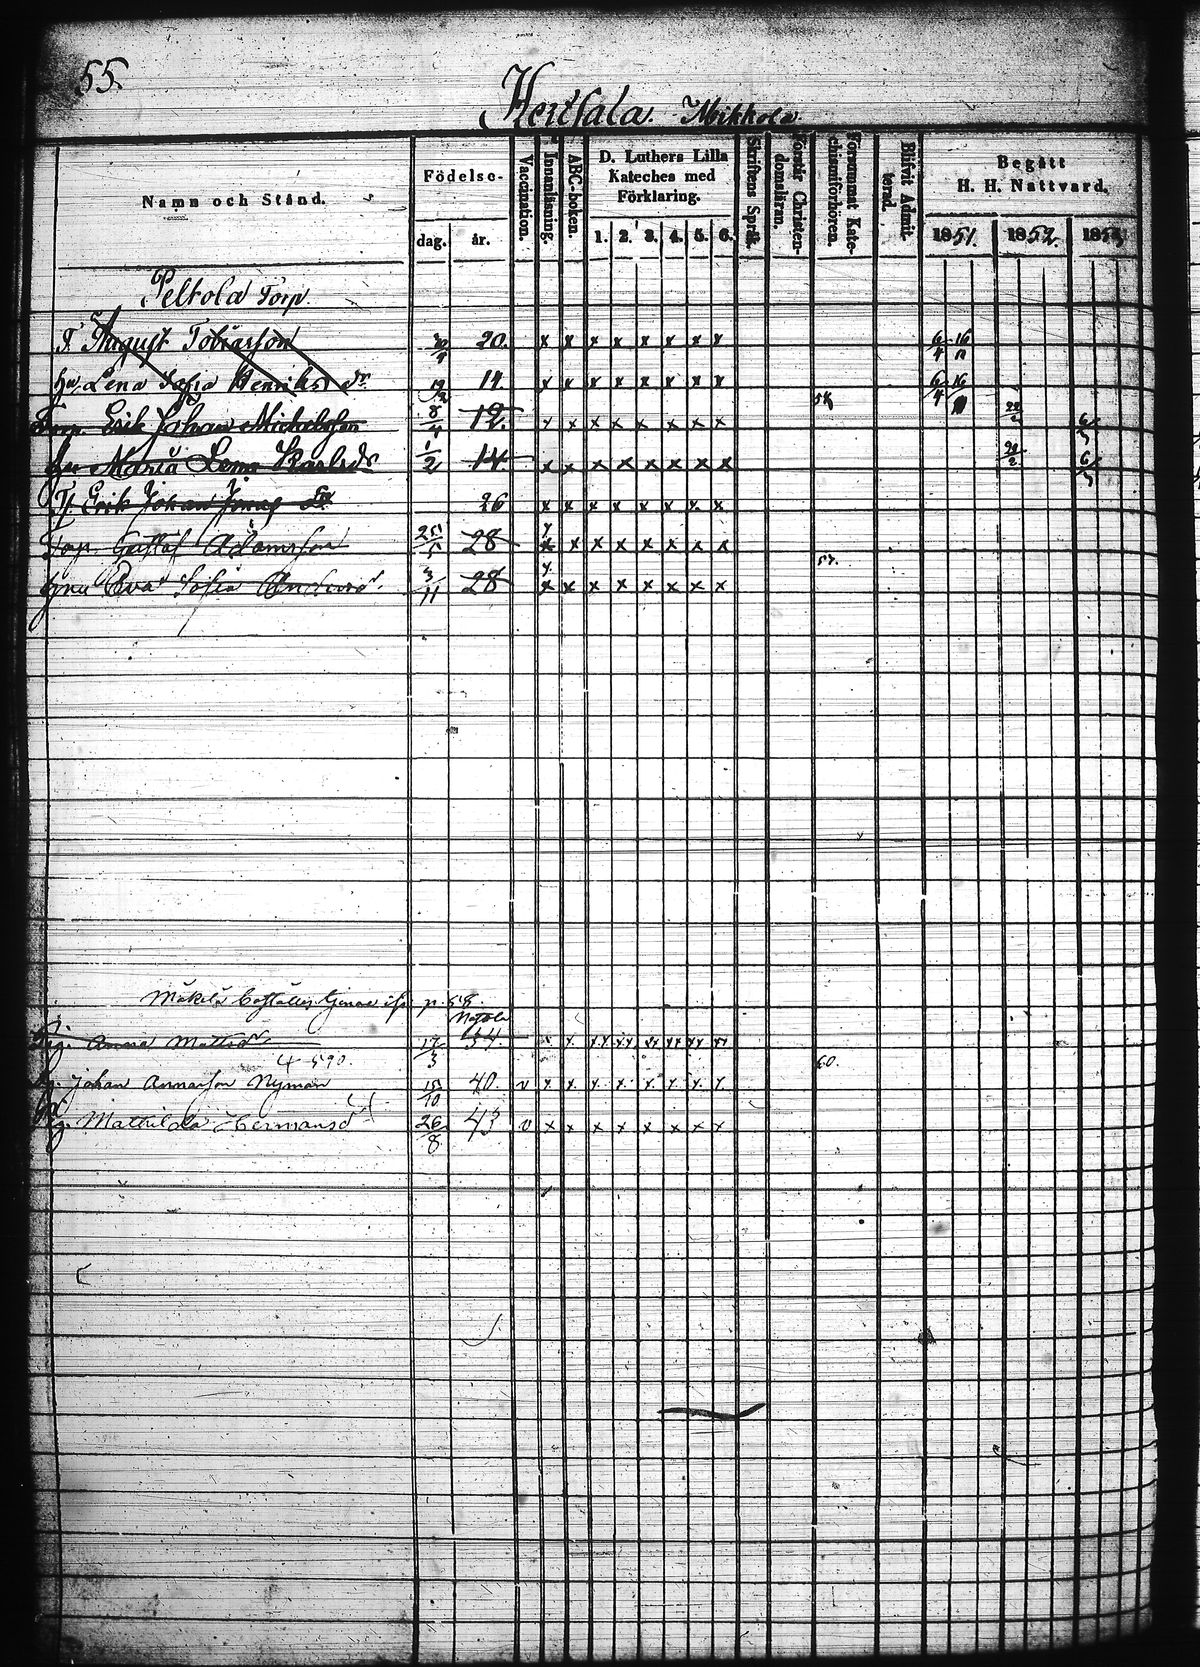 55.
Hertsala. Mikkola
Namn och Stånd.
Födelse-
dag. år.
Vaccination.
Innanläsning.
ABC-boken.
D. Luthers Lilla
Kateches med
Förklaring.
1. 2. 3. 4. 5. 6.
Skriftens Språk.
Förstår Christen-
domsläran.
Försummat Kate-
chismiförhören.
Blifvit Admit-
terad.
Begått
H. H. Nattvard.
1851. 1852. 185
Peltola Torp
August Tobiasson 20. x x x x x x x x 6/4 16
Hu. Lena Sofia Henriksdr 14 x x x x x x x x 6/4 16
Torp. Erik Johan Michelsson 8/4 12. x x x x x x x x
Hu Maria Lena Karlsdr 1/2 14 x x x x x x x x
Erik Johan 26 x x x x x x x x
Torp. Gustaf Adamsson 25/5 28 x x x x x x x x
Hu Eva Sofia 3/11 28 x x x x x x x x 57.
Mäkelä p. 58.
Pig. Anna Mattsdr 17/3 34.
4 590. 60.
Johan Annasson Nyman 15/10 40. v x x x x x x x x
Pig. Mathilda Hermansd 26/8 43 v x x x x x x x x